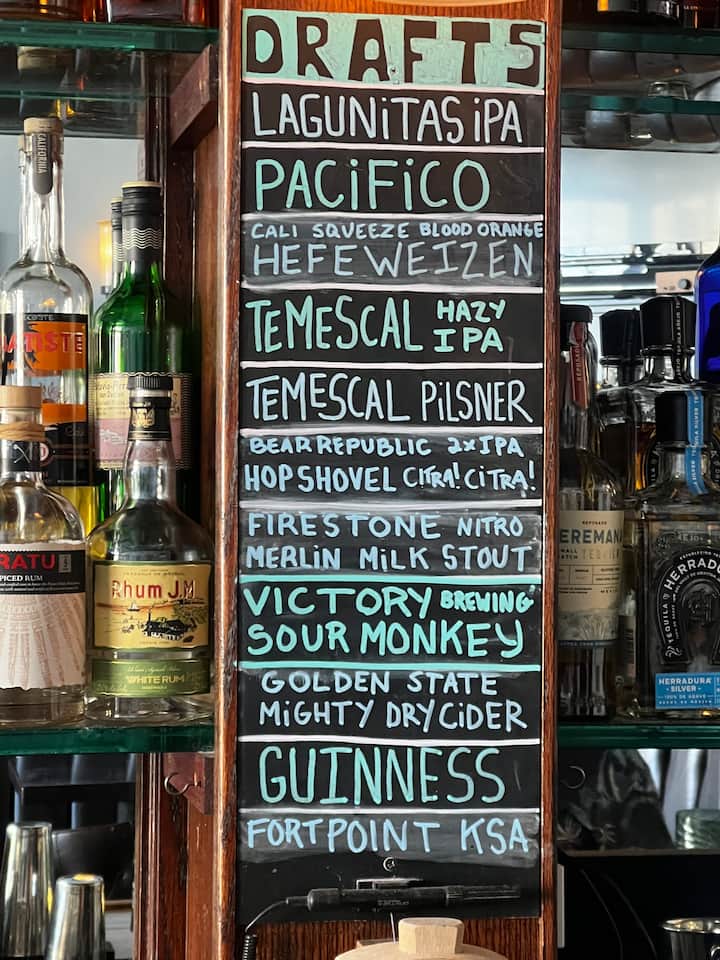 DRAFTS
LAGUNiTAS iPA
PACiFiCO
CALI SQUEEZE BLOOD ORANGE
HEFEWEIZEN
TEMESCAL HAZY
IPA
TEMESCAL PiLSNER
BEAR REPUBLIC 2xIPA
HOP SHOVEL CiTRA! CiTRA!
FIRESTONE NITRO
MERLiN MiLK STOUT
VICTORY BREWING
SOUR MONKEY
GOLDEN STATE
MiGHTY DRY CiDER
GUINNESS
FORT POINT KSA
CALIFORNIA
ATISTE
RATU
PICED RUM
Rhum J.M
WHITE RUM
EREMANA
TEQUILA
HERRADURA
HERRADURA
SILVER
100% DE AGAVE